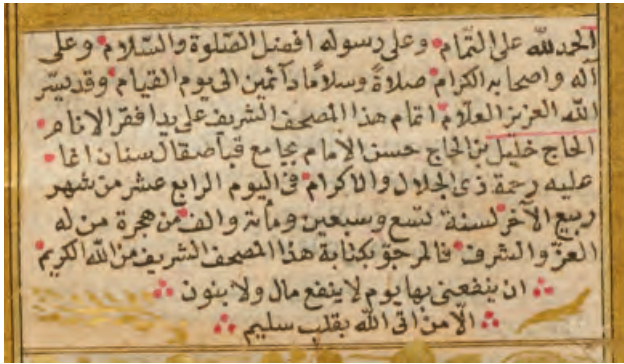 الحمد لله على التمام وعلى رسوله افضل الصلوة والسلام وعلى
آله واصحابه الكرام صلاةً وسلامًا دآئمين الى يوم القيام وقد يسّر
الله العزيز العلام اتمام هذا المصحف الشريف على يد افقر الانام
الحاج خليل بن الحاج حسن الإمام بجامع قبا صقال سنان اغا
عليه رحمة ذى الجلال والاكرام فى اليوم الرابع عشر من شهر
ربيع الآخر لسنة تسع وسبعين ومأتة والف من هجرة من له
العزّ والشرف فالمرجو بكتابة هذا المصحف الشريف من الله الكريم
ان ينفعنى بها يوم لا ينفع مال ولا بنون
الّا من اتى الله بقلب سليم